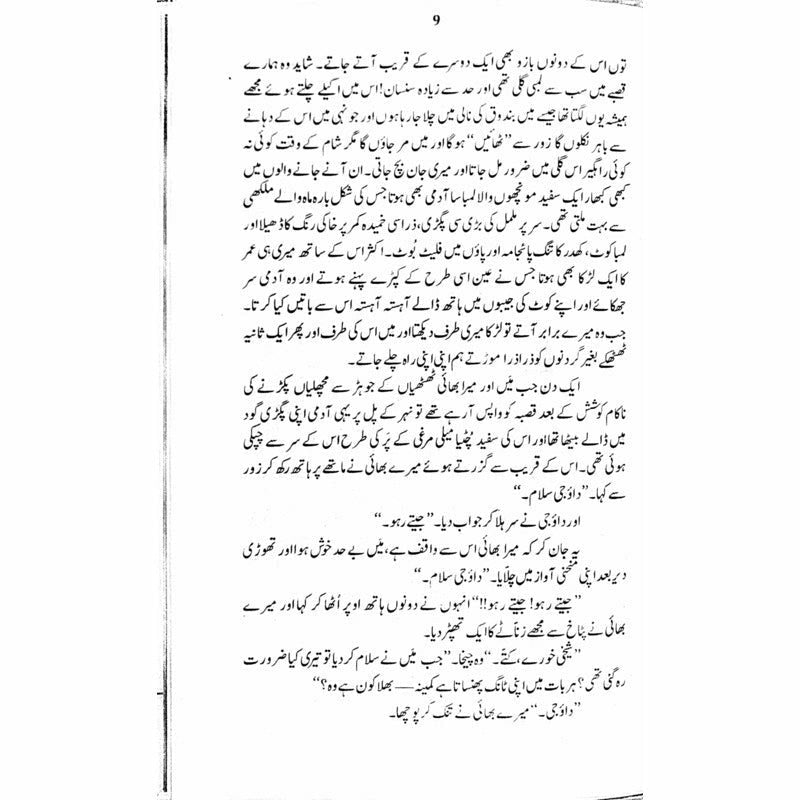 9
توں اس کے دونوں بازو بھی ایک دوسرے کے قریب آتے جاتے۔ شاید وہ ہمارے
قصبے میں سب سے لمبی گلی تھی اور حد سے زیادہ سنسان! اس میں اکیلے چلتے ہوئے مجھے
ہمیشہ یوں لگتا تھا جیسے میں بندوق کی نالی میں چلا جا رہا ہوں اور جونہی میں اس کے دہانے
سے باہر نکلوں گا زور سے ”ٹھائیں“ ہو گا اور میں مر جاؤں گا مگر شام کے وقت کوئی نہ
کوئی راہگیر اس گلی میں ضرور مل جاتا اور میری جان بچ جاتی۔ ان آنے جانے والوں میں
کبھی کبھار ایک سفید مونچھوں والا لمبا سا آدمی بھی ہوتا جس کی شکل بارہ ماہ والے ملکھی
سے بہت ملتی تھی۔ سر پر ململ کی بڑی سی پگڑی، ذرا سی خمیدہ کمر پر خاکی رنگ کا ڈھیلا اور
لمبا کوٹ، کھدر کا تنگ پائجامہ اور پاؤں میں فلیٹ بُوٹ۔ اکثر اس کے ساتھ میری ہی عمر
کا ایک لڑکا بھی ہوتا جس نے عین اسی طرح کے کپڑے پہنے ہوتے اور وہ آدمی سر
جھکائے اور اپنے کوٹ کی جیبوں میں ہاتھ ڈالے آہستہ آہستہ اس سے باتیں کیا کرتا۔
جب وہ میرے برابر آتے تو لڑکا میری طرف دیکھتا اور میں اس کی طرف اور پھر ایک ثانیہ
ٹھٹھکے بغیر گردنوں کو ذرا ذرا موڑتے ہم اپنی اپنی راہ چلے جاتے۔
ایک دن جب میں اور میرا بھائی ٹھٹھیاں کے جوہڑ سے مچھلیاں پکڑنے کی
ناکام کوشش کے بعد قصبہ کو واپس آ رہے تھے تو نہر کے پل پر یہی آدمی اپنی پگڑی گود
میں ڈالے بیٹھا تھا اور اس کی سفید چُٹیا میلی مرغی کے پَر کی طرح اس کے سر سے چپکی
ہوئی تھی۔ اس کے قریب سے گزرتے ہوئے میرے بھائی نے ماتھے پر ہاتھ رکھ کر زور
سے کہا۔ ”داؤ جی سلام۔“
اور داؤ جی نے سر ہلا کر جواب دیا۔ ”جیتے رہو۔“
یہ جان کر کہ میرا بھائی اس سے واقف ہے، میں بے حد خوش ہوا اور تھوڑی
دیر بعد اپنی منحنی آواز میں چلّایا۔ ”داؤ جی سلام۔“
”جیتے رہو! جیتے رہو!!“ انہوں نے دونوں ہاتھ اوپر اُٹھا کر کہا اور میرے
بھائی نے پٹاخ سے مجھے زناٹے کا ایک تھپڑ دیا۔
”شیخی خورے، کتے۔“ وہ چیخا۔ ”جب میں نے سلام کر دیا تو تیری کیا ضرورت
رہ گئی تھی؟ ہر بات میں اپنی ٹانگ پھنساتا ہے کمینہ — بھلا کون ہے وہ؟“
”داؤ جی۔“ میرے بھائی نے تنک کر پوچھا۔